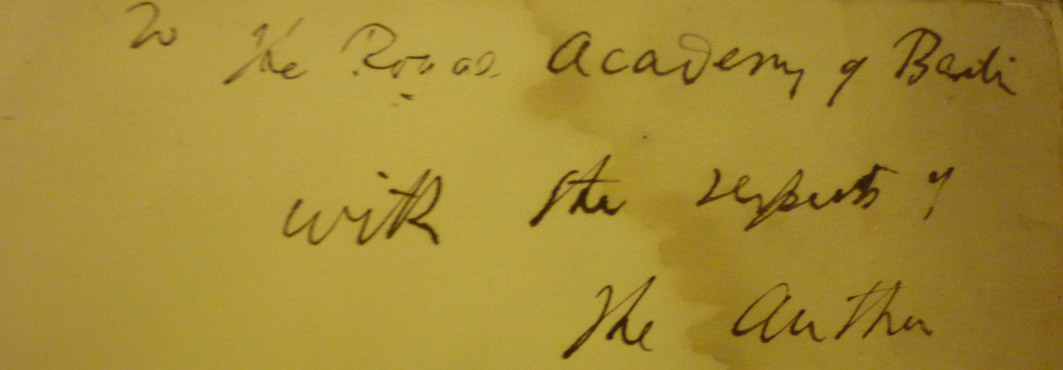 To the Royal Academy of Berlin
with the respects of
the Author